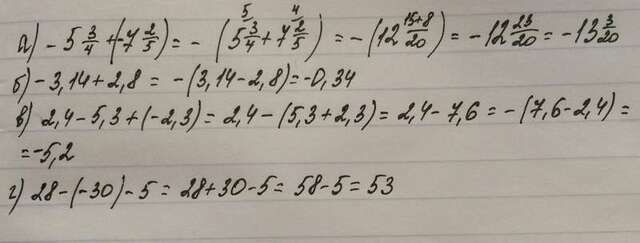 а) -5 3/4 + (-7 2/5) = -(5 3/4 ⁵ + 7 2/5 ⁴) = -(12 15+8/20) = -12 23/20 = -13 3/20
б) -3,14 + 2,8 = -(3,14 - 2,8) = -0,34
в) 2,4 - 5,3 + (-2,3) = 2,4 - (5,3 + 2,3) = 2,4 - 7,6 = -(7,6 - 2,4) =
= -5,2
г) 28 - (-30) - 5 = 28 + 30 - 5 = 58 - 5 = 53